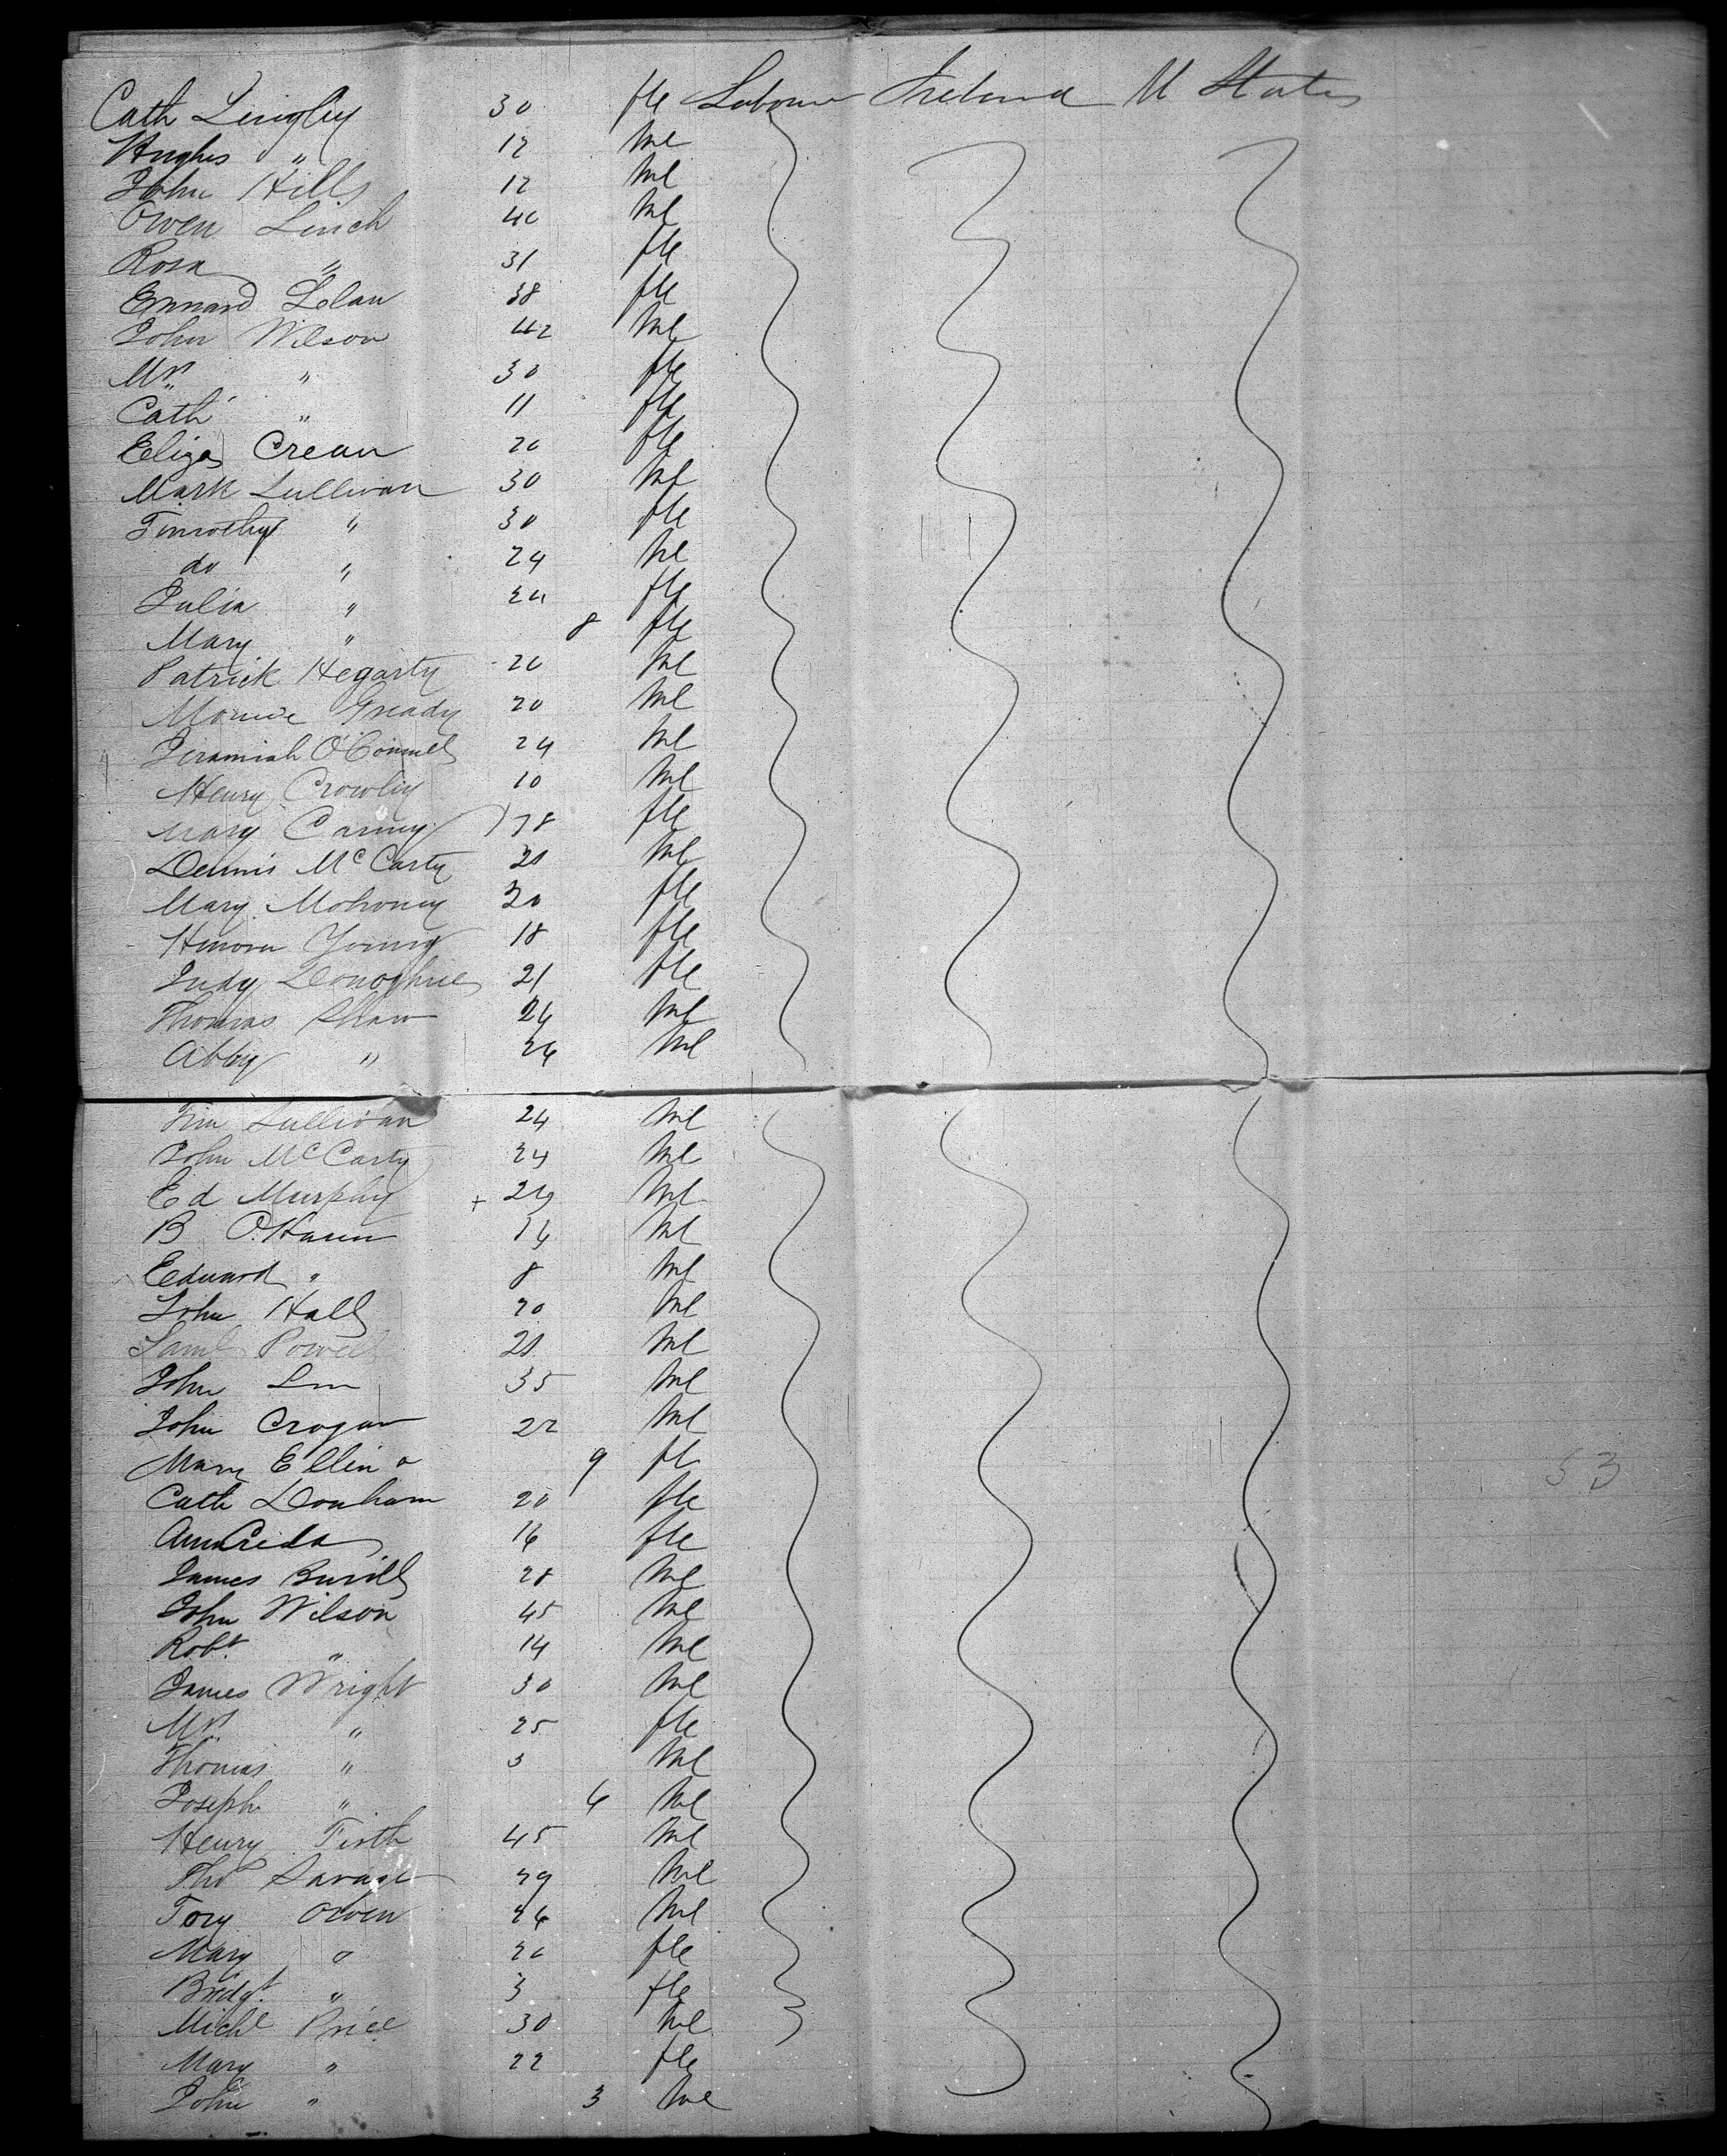 Cath Lingley 30 fle Labour Ireland U States
Hughs " 12 Ml
John Hills 12 Ml
Owen Linch 40 Ml
Rosa " 31 fle
Ennard Lelan 38 fle
John Wilson 42 Ml
Mrs " 30 fle
Cath " 11 fle
Eliza Crean 20 fle
Mark Sullivan 30 Ml
Timothy " 30 fle
do " 24 Ml
Julia " 24 fle
Mary " 8 fle
Patrick Hegarty 20 Ml
Gready 20 Ml
Jeramiah O'Connell 24 Ml
Henry Crowley 10 Ml
Mary Carney 78 fle
Dennis McCarty 21 Ml
Mary Mohoney 30 fle
Honora Young 18 fle
Judy Donoghue 21 fle
Thomas Shaw 24 Ml
Abby " 26 Ml
Tim Sullivan 24 Ml
John McCarty 24 Ml
Ed Murphy + 24 Ml
B O'Haren 14 Ml
Edward " 8 Ml
John Hall 20 Ml
Saml Powell 21 Ml
John 35 Ml
John Crogan 22 Ml
Mary Ellin " 9 fle
Cath Donham 20 fle
Ann 16 fle
James Burill 28 Ml
John Wilson 45 Ml
Robt " 14 Ml
James Wright 30 Ml
Mrs " 25 fle
Thomas " 3 Ml
Joseph " 6 Ml
Henry Firth 45 Ml
Tho Savage 29 Ml
Tory Owen 26 Ml
Mary " 20 fle
Bridgt " 3 fle
Michl Price 30 Ml
Mary " 22 fle
John " 3 Ml
53